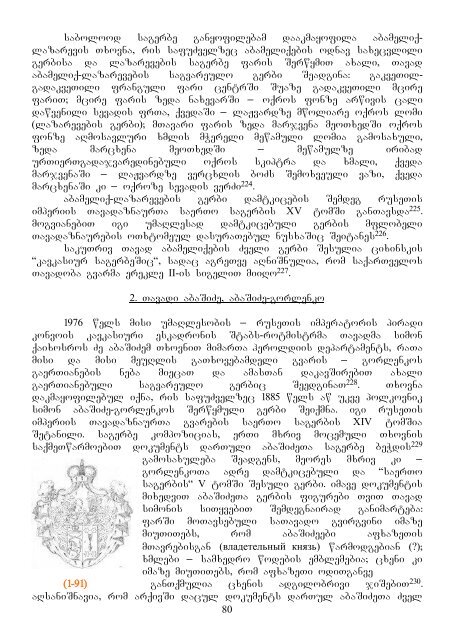 საბოლოოდ საგერბე განყოფილებამ დააკმაყოფილა აბამელიქ-
ლაზარევის თხოვნა, რის საფუძველზეც აბამელიქების ოდნავ სახეცვლილი
გერბისა და ლაზარევების საგერბე ფარის შერწყმით ახალი, თავად
აბამელიქ-ლაზარევების საგვარეულო გერბი შეადგინა: გაკვეთილ-
გადაკვეთილი ფრანგული ფარი ცენტრში შუაზე გადაკვეთილი მცირე
ფარით; მცირე ფარის ზედა ნახევარში – ოქროს ფონზე არწივის ცალი
დაწვენილი სევადის ფრთა, ქვედაში – ლაჟვარდზე მწოლიარე ოქროს ლომი
(ლაზარევების გერბი); მთავარი ფარის ზედა მარჯვენა მეოთხედში ოქროს
ფონზე აღმოსავლური ხმლის მჭერელი მეწამული ლომია გამოსახული,
ზედა მარცხენა მეოთხედში – მეწამულზე ირიბად
ურთიერთგადაჯვარედინებული ოქროს სკიპტრა და ხმალი, ქვედა
მარჯვენაში – ლაჟვარდზე ვერცხლის ბოძს შემოხვეული ვაზი, ქვედა
მარცხენაში კი – ოქროზე სევადის ვერძი224.
აბამელიქ-ლაზარევების გერბი დამტკიცების შემდეგ რუსეთის
იმპერიის თავადაზნაურთა საერთო საგერბის XV ტომში განთავსდა225.
მოგვიანებით იგი უმაღლესად დამტკიცებული გერბის მფლობელი
თავადაზნაურების ოთხტომეულ დასურათებულ ნუსხაშიც შეიტანეს226.
საკუთრივ თავად აბამელიქების ძველი გერბი შესულია ციხინსკის
“კავკასიურ საგერბეშიც”, სადაც აგრეთვე აღნიშნულია, რომ საქართველოს
თავადობა გვარმა ერეკლე II-ის სიგელით მიიღო227.
2. თავადი აბაშიძე, აბაშიძე-გორლენკო
1976 წელს მისი უმაღლესობის – რუსეთის იმპერატორის პირადი
კონვოის კავკასიური ესკადრონის შტაბს-როტმისტრმა თავადმა სიმონ
ქაიხოსროს ძე აბაშიძემ თხოვნით მიმართა ჰეროლდიის დეპარტამენტს, რათა
მისი და მისი მეუღლის გათხოვებამდელი გვარის – გორლენკოს
გაერთიანების ნება მიეცათ და ამასთან დაკავშირებით ახალი
გაერთიანებული საგვარეულო გერბიც შეედგინათ228. თხოვნა
დაკმაყოფილებულ იქნა, რის საფუძველზეც 1885 წელს აწ უკვე პოლკოვნიკ
სიმონ აბაშიძე-გორლენკოს შერწყმული გერბი შეიქმნა. იგი რუსეთის
იმპერიის თავადაზნაურთა გვარების საერთო საგერბის XIV ტომშია
შეტანილი. საგერბე კომპოზიციას, ერთი მხრივ მოცემული თხოვნის
საქმეთწარმოებით დოკუმენტს დართული აბაშიძეთა საგერბე ბეჭდის229
გამოსახულება შეადგენს, მეორეს მხრივ კი –
გორლენკოთა ადრე დამტკიცებული და “საერთო
საგერბის“ V ტომში შესული გერბი. იმავე დოკუმენტის
მიხედვით აბაშიძეთა გერბის ფიგურები თვით თავად
სიმონის სიტყვებით შემდეგნაირად განიმარტება:
ფარში მოთავსებული სათავადო გვირგვინი იმაზე
მიუთითებს, რომ აბაშიძეები აფხაზეთის
მთავრებისგან (владетельный князь) წარმოდგებიან (?);
ხმლები – სამხედრო წოდების ემბლემებია; ცხენი კი
იმაზე მიუთითებს, რომ აფხაზეთი ოდითგანვე
(1-91) განთქმულია ცხენის ადგილობრივი ჯიშებით230.
აღსანიშნავია, რომ არქივში დაცულ დოკუმენტს დართულ აბაშიძეთა ძველ
80